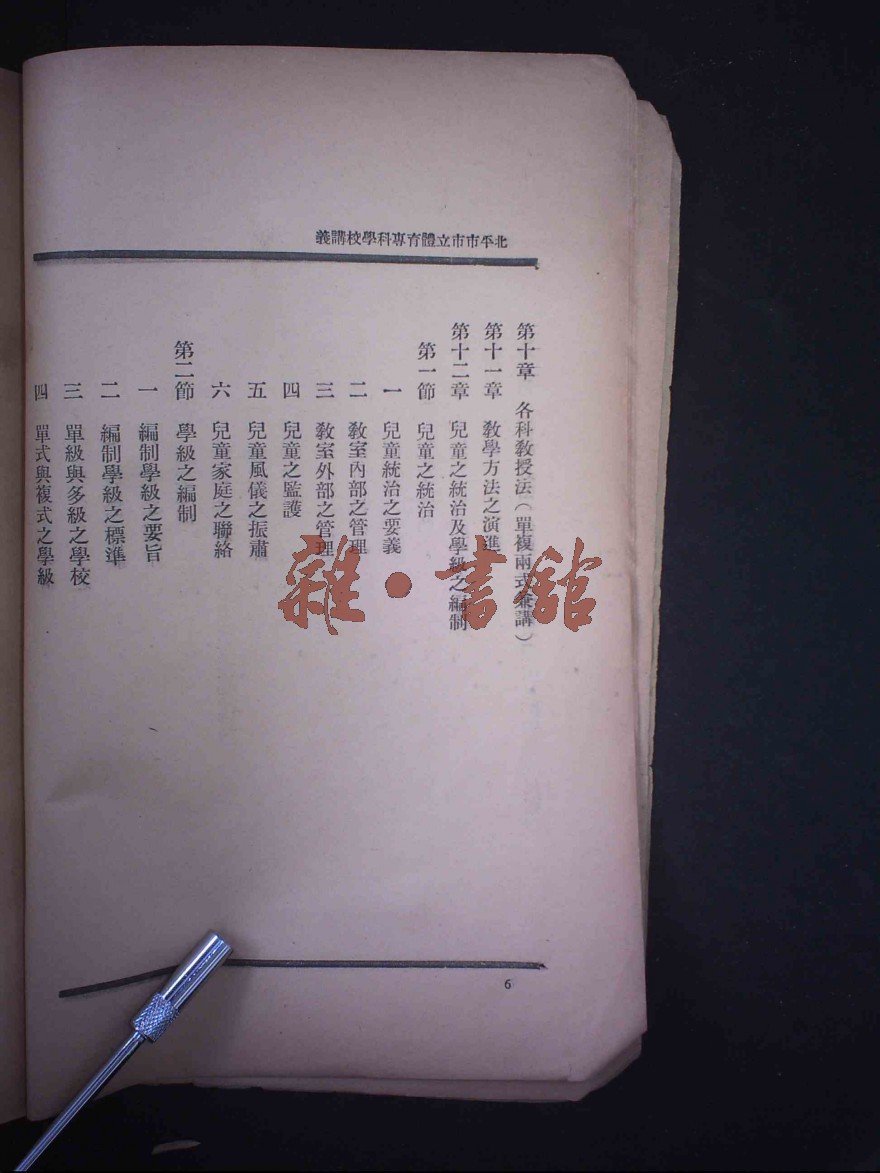 北平市市立體育專科學校講義
第十章　各科教授法（單複兩式兼講）
第十一章　教學方法之演進
第十二章　兒童之統治及學級之編制
第一節　兒童之統治
一　兒童統治之要義
二　教室內部之管理
三　教室外部之管理
四　兒童之監護
五　兒童風儀之振肅
六　兒童家庭之聯絡
第二節　學級之編制
一　編制學級之要旨
二　編制學級之標準
三　單級與多級之學校
四　單式與複式之學級
6
雜·書館